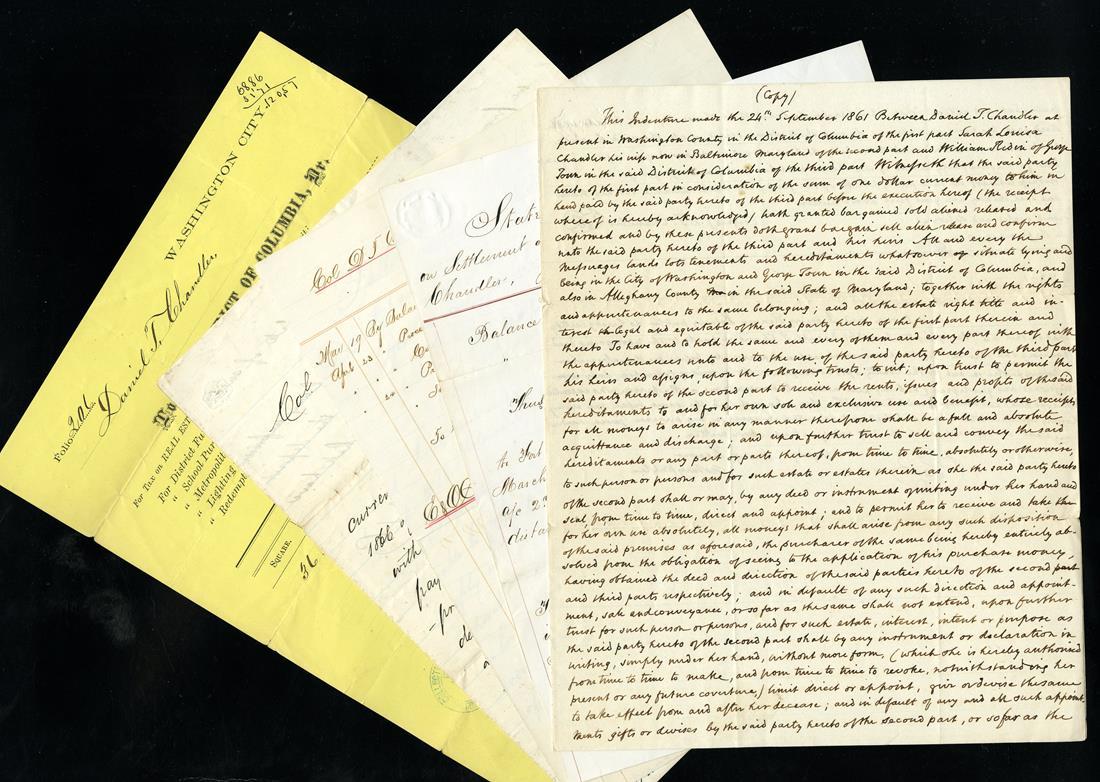 68,86
51 71
120,57
WASHINGTON CITY,
DISTRICT OF COLUMBIA, Dr.
Folio 201
Daniel T. Chandler,
For Tax on REAL EST
For District Fu
" School Pur
" Metropolit
" Lighting
" Redempt
SQUARE.
36
Col D T C
Mar 19 By Balan
April " " Proce
" 20 "
So
So
E&OE
Col
curren
1866
with
pay
pr
de
State
on Settlement
Chandler,
Balance
"
to
March
a/c
(Copy)
This Indenture made the 24th September 1861 Between Daniel T. Chandler at
present in Washington County in the District of Columbia of the first part Sarah Louisa
Chandler his wife now in Baltimore Maryland of the second part and William Redin of George
Town in the said District of Columbia of the third part Witnesseth that the said party
hereto of the first part in consideration of the sum of one dollar current money to him in
hand paid by the said party hereto of the third part before the execution hereof (the receipt
whereof is hereby acknowledged) hath granted bargained sold aliened released and
confirmed and by these presents doth grant bargain sell alien release and confirm
unto the said party hereto of the third part and his heirs All and every the
Messuages lands lots tenements and hereditaments whatsoever of situate lying and
being in the City of Washington and George Town in the said District of Columbia, and
also in Alleghany County in the said State of Maryland; together with the rights
and appurtenances to the same belonging; and all the estate right title and in-
terest legal and equitable of the said party hereto of the first part therein and
thereto To have and to hold the same and every of them and every part thereof with
the appurtenances unto and to the use of the said party hereto of the third part
his heirs and assigns, upon the following trusts; to wit; upon trust to permit the
said party hereto of the second part to receive the rents, issues and profits of the said
hereditaments to and for her own sole and exclusive use and benefit, whose receipts
for all moneys to arise in any manner therefrom shall be a full and absolute
acquittance and discharge; and upon further trust to sell and convey the said
hereditaments or any part or parts thereof, from time to time, absolutely or otherwise,
to such person or persons and for such estate or estates therein as she the said party hereto
of the second part shall or may, by any deed or instrument of writing under her hand and
seal, from time to time, direct and appoint; and to permit her to receive and take the
for her own use absolutely, all moneys that shall arise from any such disposition
of the said premises as aforesaid, the purchaser of the same being hereby entirely ab-
solved from the obligation of seeing to the application of his purchase money,
having obtained the deed and direction of the said parties hereto of the second part
and third parts respectively; and in default of any such direction and appoint-
ment, sale and conveyance, or so far as the same shall not extend, upon further
trust for such person or persons, and for such estate, interest, intent or purpose as
the said party hereto of the second part shall by any instrument or declaration in
writing, simply under her hand, without more form, (which she is hereby authorised
from time to time to make, and from time to time to revoke, notwithstanding her
present or any future coverture,) limit direct or appoint, give or devise the same
to take effect from and after her decease; and in default of any and all such appoint-
ments gifts or devises by the said party hereto of the second part, or so far as the